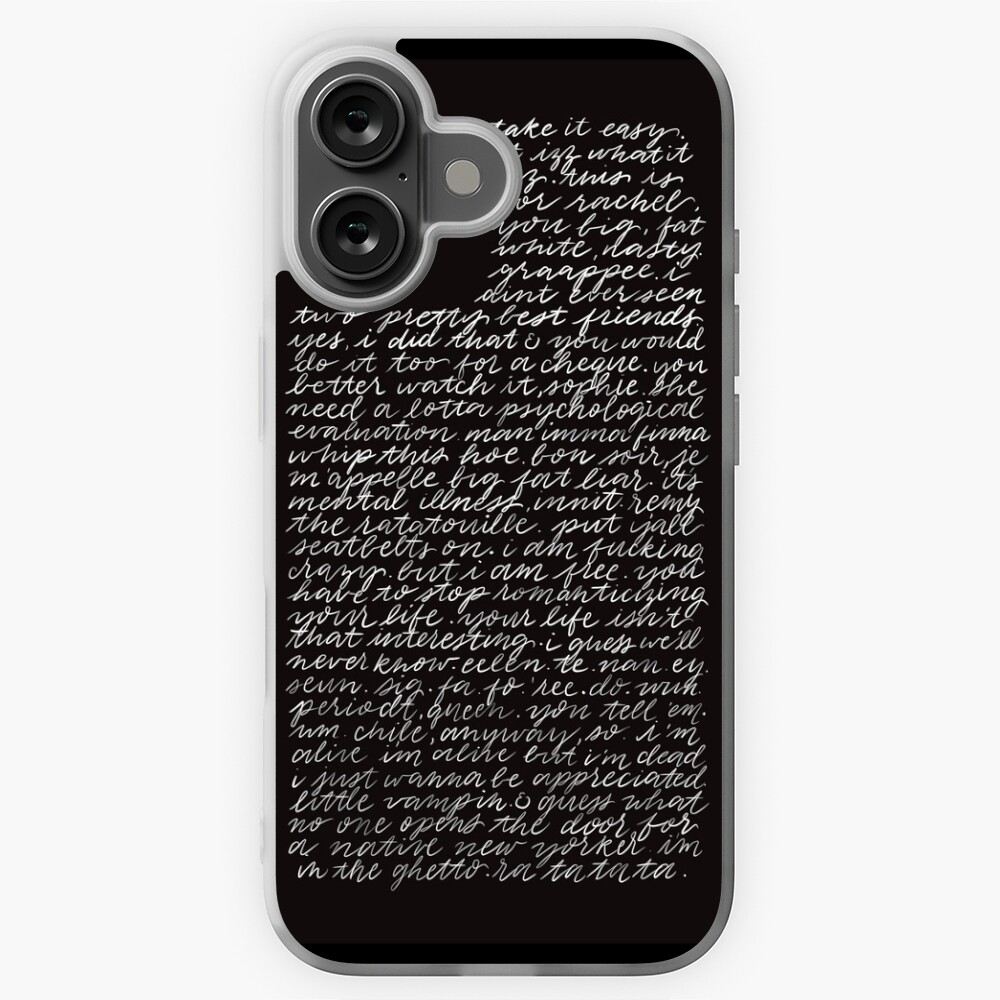 take it easy.
izz what it
z. this is
or rachel.
you big, fat
white, nasty.
graappee. i
aint ever seen
two pretty best friends
yes, i did that & you would
do it too for a cheque. you
better watch it, sophie. she
need a lotta psychological
evaluation. man imma finna
whip this hoe. bon soir, je
m'appelle big fat liar. its
mental illness, innit. remy
the ratatouille. put yall
seatbelts on. i am fucking
crazy. but i am free. you
have to stop romanticizing
your life. your life isn't
that interesting. i guess we'll
never know. eelen. te. nan. ey.
seun. sig. fa. fo. 'ree. do. wuh.
periodt, queen. you tell 'em.
um chile, anyway, so. i'm
alive im alive but i'm dead
i just wanna be appreciated.
little vampin. & guess what
no one opens the door for
a native new yorker. im
in the ghetto. ra ta ta ta.